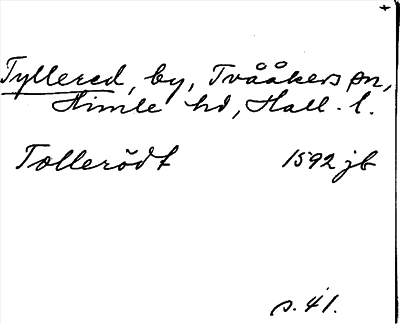 Tyllered, by, Tvååkers sn,
Himle hd, Hall. l.
Tollerödt 1592 jb
s. 41.